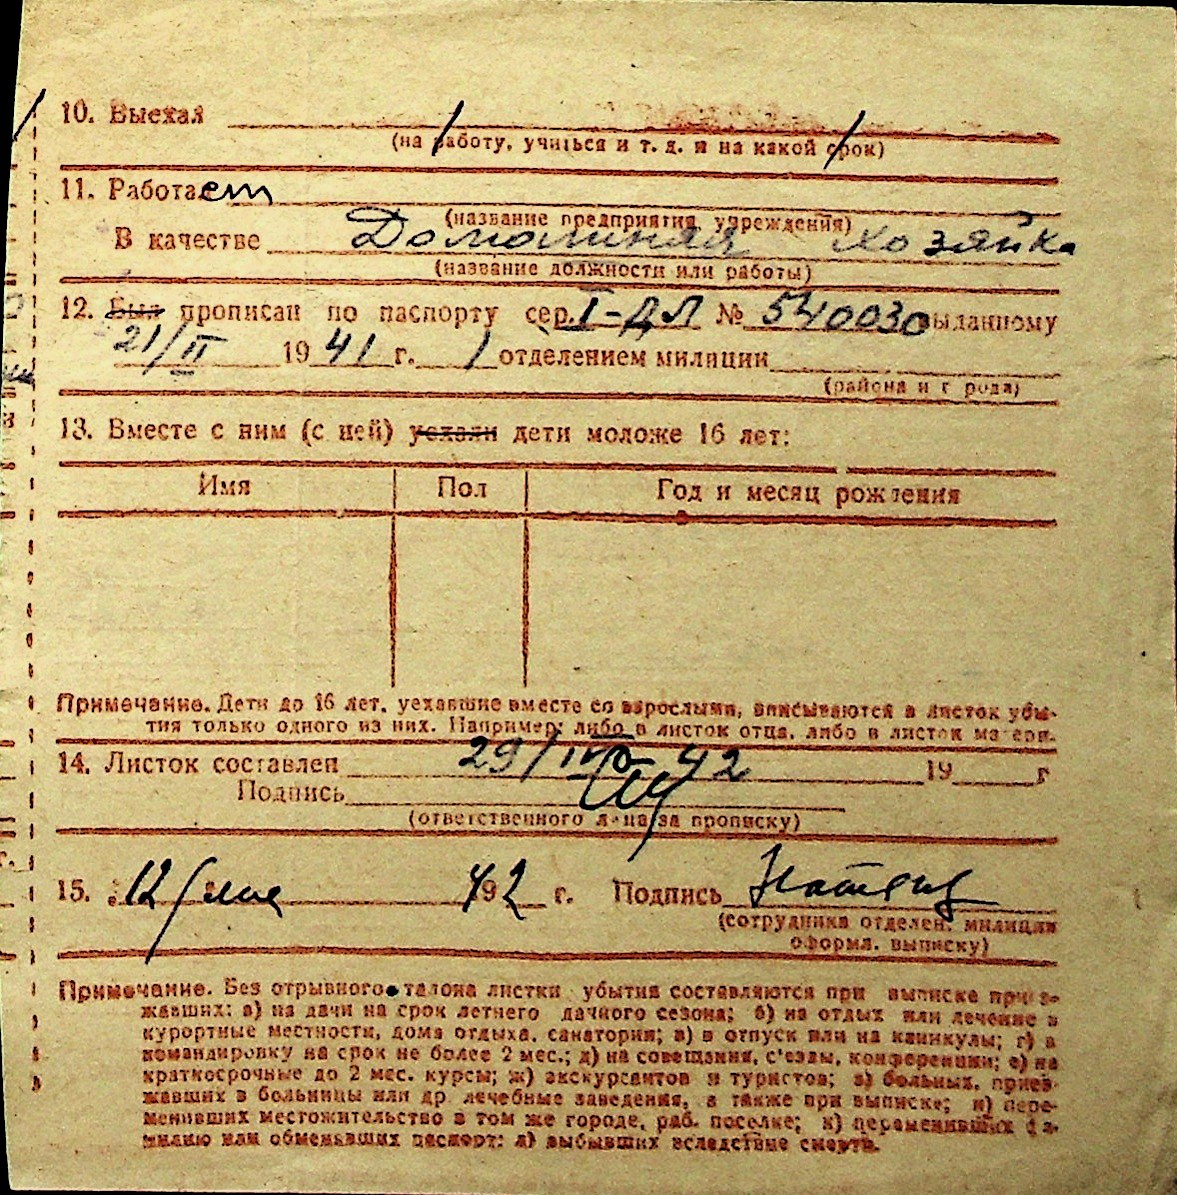 10. Выехал
(на работу, учиться и т. д. и на какой срок)
11. Работает
(название предприятия, учреждения)
В качестве Домашняя хозяйка
(название должности или работы)
12. Был прописан по паспорту сер. I-ДЛ № 540030 выданному
21/II 1941 г. / отделением милиции
(района и города)
13. Вместе с ним (с ней) уехали дети моложе 16 лет:
Имя Пол Год и месяц рождения
Примечание. Дети до 16 лет, уехавшие вместе со взрослыми, вписываются в листок убы-
тия только одного из них. Например: либо в листок отца, либо в листок матери.
14. Листок составлен 29/IV 42 19 г
Подпись
(ответственного лица за прописку)
15. 12/мая 192 г. Подпись
(сотрудника отделен. милиции
оформл. выписку)
Примечание. Без отрывного талона листки убытия составляются при выписке приез-
жавших: а) на дачи на срок летнего дачного сезона; б) на отдых или лечение в
курортные местности, дома отдыха, санатории; в) в отпуск или на каникулы; г) в
командировку на срок не более 2 мес.; д) на совещания, с'езды, конференции; е) на
краткосрочные до 2 мес. курсы; ж) экскурсантов и туристов; з) больных, приез-
жавших в больницы или др. лечебные заведения, а также при выписке; и) пере-
менивших местожительство в том же городе, раб. поселке; к) переменивших фа-
милию или обменявших паспорт; л) выбывших вследствие смерти.